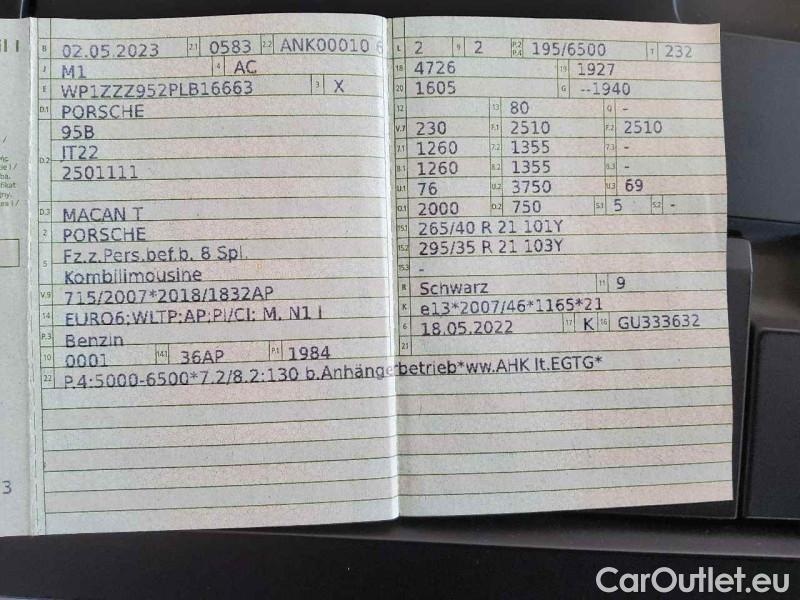 B 02.05.2023 2.1 0583 2.2 ANK00010 6
J M1 4 AC
E WP1ZZZ952PLB16663 3 X
D.1 PORSCHE
95B
D.2 IT22
2501111
D.3 MACAN T
2 PORSCHE
5 Fz.z.Pers.bef.b. 8 Spl.
Kombilimousine
V.9 715/2007*2018/1832AP
14 EURO6;WLTP;AP;PI/CI; M, N1 I
P.3 Benzin
10 0001 14.1 36AP P.1 1984
22 P.4:5000-6500*7.2/8.2:130 b.Anhängerbetrieb*ww.AHK lt.EGTG*
L 2 9 2 P.2 P.4 195/6500 T 232
18 4726 19 1927
20 1605 G --1940
12 13 80 Q -
V.7 230 F.1 2510 F.2 2510
7.1 1260 7.2 1355 7.3 -
8.1 1260 8.2 1355 8.3 -
U.1 76 U.2 3750 U.3 69
O.1 2000 O.2 750 S.1 5 S.2 -
15.1 265/40 R 21 101Y
15.2 295/35 R 21 103Y
15.3 -
R Schwarz 11 9
K e13*2007/46*1165*21
6 18.05.2022 17 K 16 GU333632
21
3
CarOutlet.eu